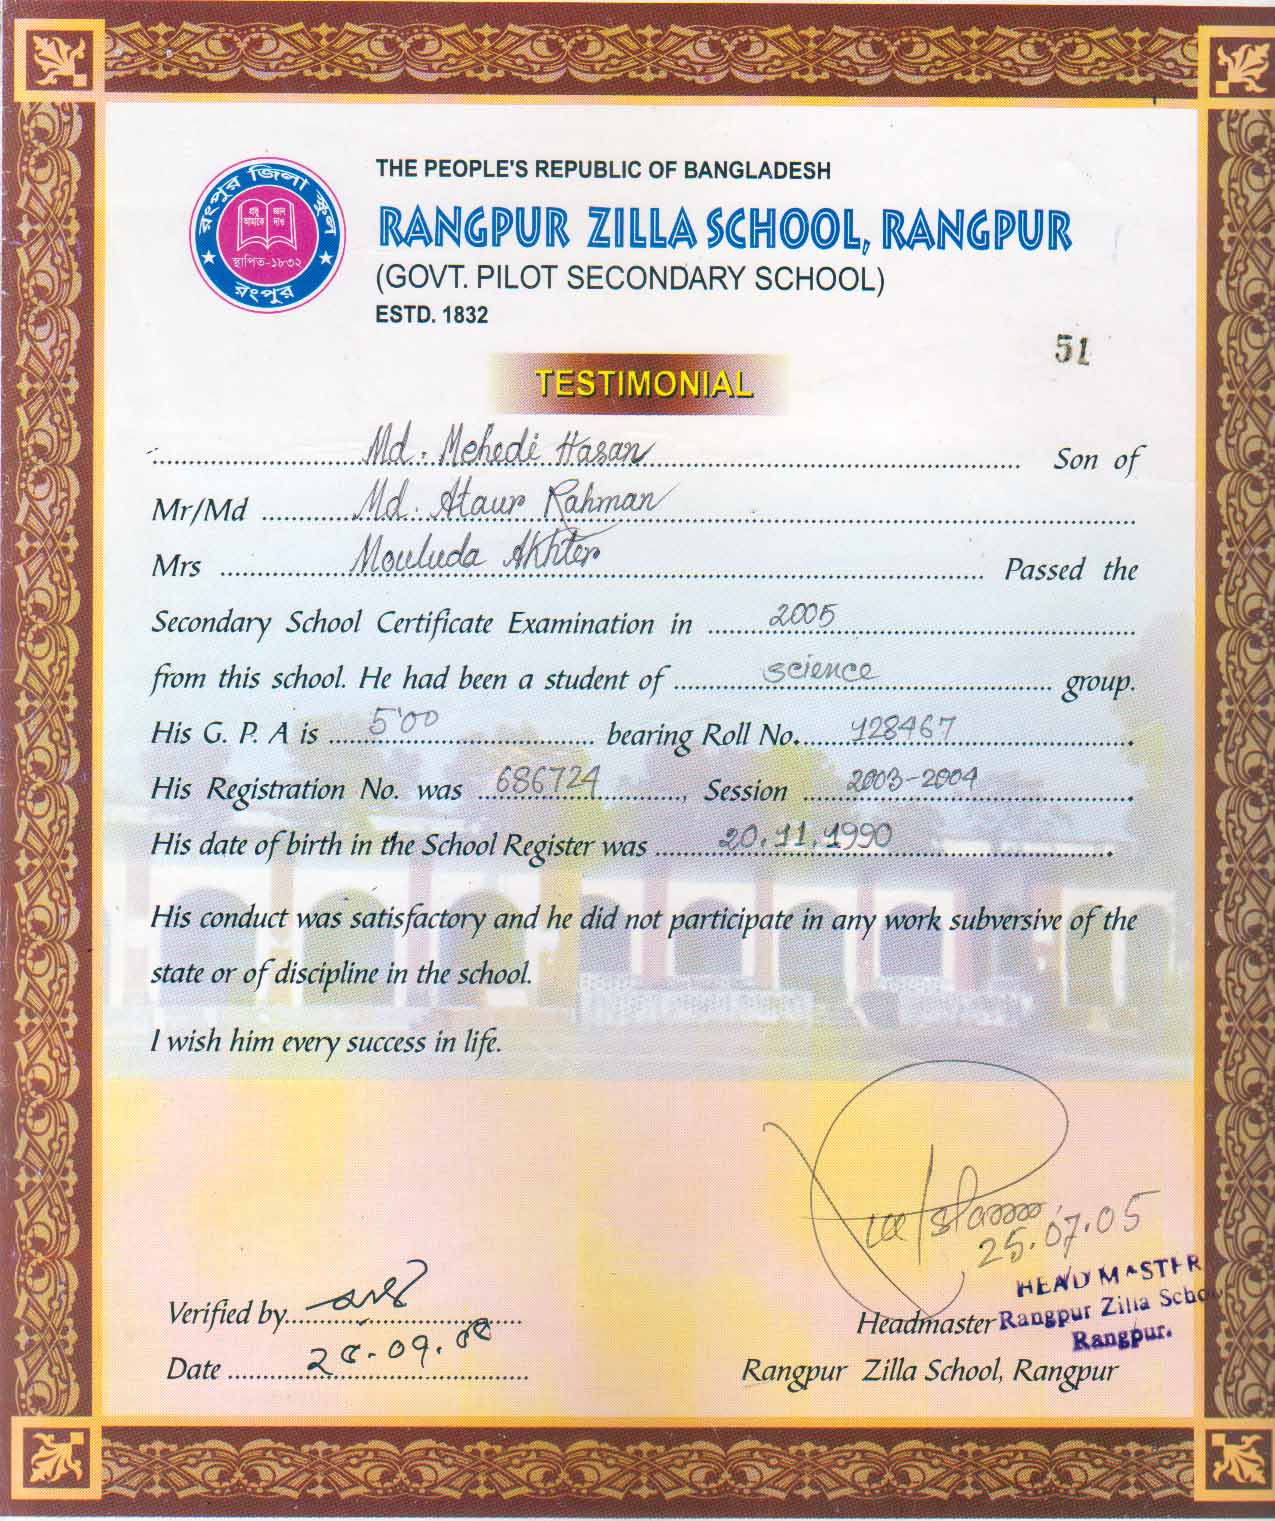 রংপুর জিলা স্কুল
প্রভু জ্ঞান
আমাকে দাও
স্থাপিত-১৮৩২
রংপুর
THE PEOPLE'S REPUBLIC OF BANGLADESH
RANGPUR ZILLA SCHOOL, RANGPUR
(GOVT. PILOT SECONDARY SCHOOL)
ESTD. 1832
51
TESTIMONIAL
Md. Mehedi Hasan Son of
Mr/Md Md. Ataur Rahman
Mrs Mouluda Akhter Passed the
Secondary School Certificate Examination in 2005
from this school. He had been a student of science group.
His G. P. A is 5'00 bearing Roll No. 128467.
His Registration No. was 686724, Session 2003-2004.
His date of birth in the School Register was 20.11.1990.
His conduct was satisfactory and he did not participate in any work subversive of the
state or of discipline in the school.
I wish him every success in life.
25.07.05
HEAD MASTER
Verified by
Headmaster Rangpur Zilla School
Rangpur.
Date ২৫.০৭.০৫
Rangpur Zilla School, Rangpur